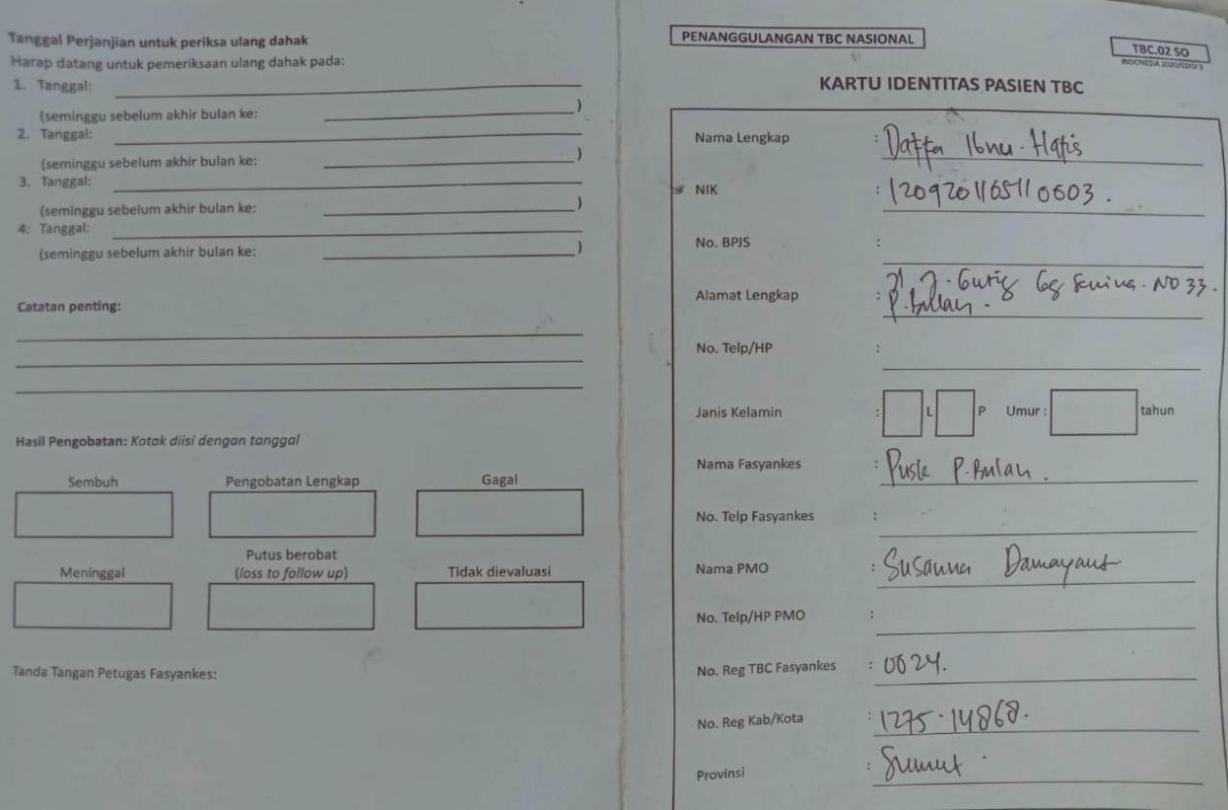 Tanggal Perjanjian untuk periksa ulang dahak
Harap datang untuk pemeriksaan ulang dahak pada:
1. Tanggal:
(seminggu sebelum akhir bulan ke: )
2. Tanggal:
(seminggu sebelum akhir bulan ke: )
3. Tanggal:
(seminggu sebelum akhir bulan ke: )
4. Tanggal:
(seminggu sebelum akhir bulan ke: )
Catatan penting:
Hasil Pengobatan: Kotak diisi dengan tanggal
Sembuh Pengobatan Lengkap Gagal
Meninggal Putus berobat Tidak dievaluasi
(loss to follow up)
Tanda Tangan Petugas Fasyankes:
PENANGGULANGAN TBC NASIONAL
TBC.02 SO
INDONESIA 2020/EDISI 3
KARTU IDENTITAS PASIEN TBC
Nama Lengkap : Daffa Ibnu Hafis
NIK : 1209201165110603.
No. BPJS :
Alamat Lengkap : NO 33.
P. Bulan.
No. Telp/HP :
Janis Kelamin : L P Umur : tahun
Nama Fasyankes : Pusk P. Bulan.
No. Telp Fasyankes :
Nama PMO : Susanna Damayant
No. Telp/HP PMO :
No. Reg TBC Fasyankes : 0024.
No. Reg Kab/Kota : 1275.14868.
Provinsi : Sumut.